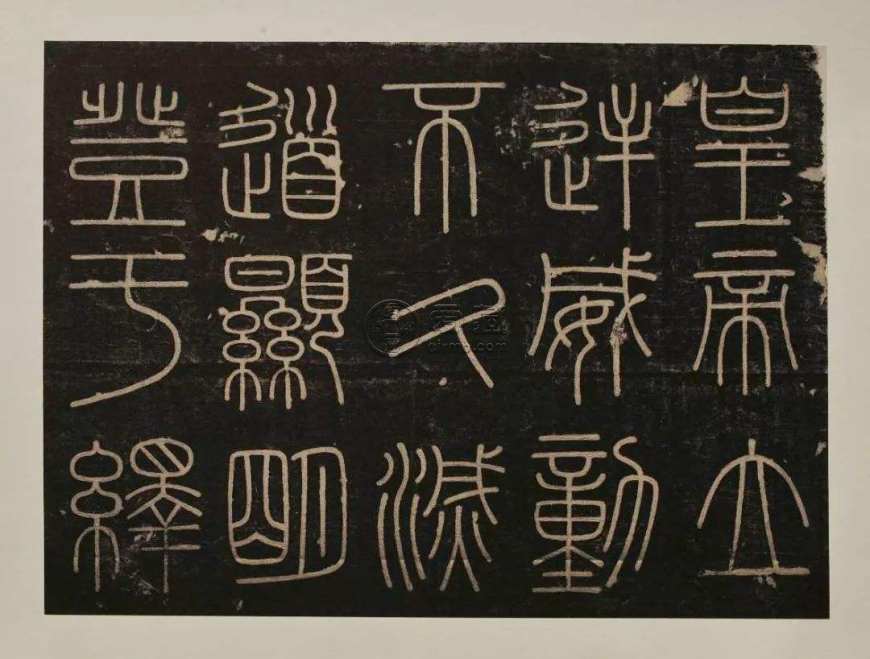 皇帝立
逆威動
不久滅
道顯明
登于繹